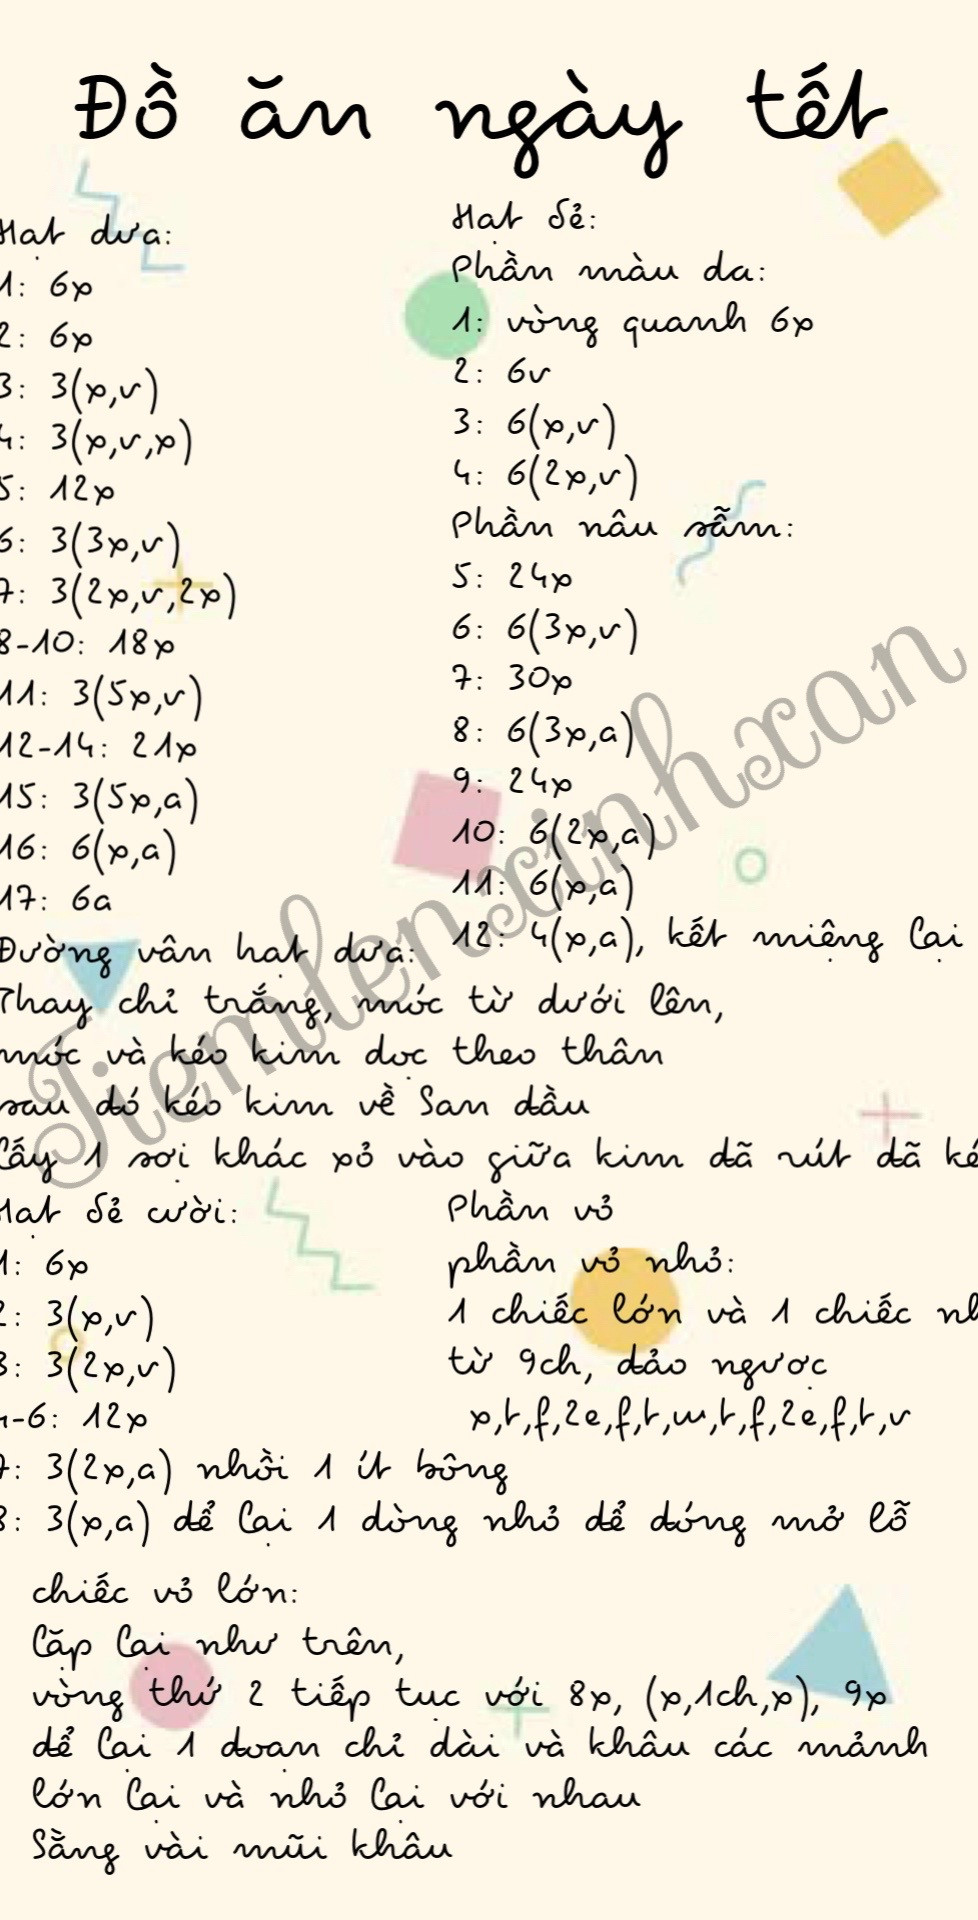 Đồ ăn ngày tết
Hạt dưa:
1: 6p
2: 6p
3: 3(p,v)
4: 3(p,v,p)
5: 12p
6: 3(3p,v)
7: 3(2p,v,2p)
8-10: 18p
11: 3(5p,v)
12-14: 21p
15: 3(5p,a)
16: 6(p,a)
17: 6a
Hạt dẻ:
Phần màu da:
1: vòng quanh 6p
2: 6v
3: 6(p,v)
4: 6(2p,v)
Phần nâu sẫm:
5: 24p
6: 6(3p,v)
7: 30p
8: 6(3p,a)
9: 24p
10: 6(2p,a)
11: 6(p,a)
12: 4(p,a), kết miệng lại
Đường vân hạt dưa:
Thay chỉ trắng, móc từ dưới lên,
móc và kéo kim dọc theo thân
sau đó kéo kim về ban đầu
Lấy 1 sợi khác xỏ vào giữa kim đã rút đã ké
Hạt dẻ cười:
1: 6p
2: 3(p,v)
3: 3(2p,v)
4-6: 12p
7: 3(2p,a) nhồi 1 ít bông
8: 3(p,a) để lại 1 dòng nhỏ để đóng mở lỗ
Phần vỏ
phần vỏ nhỏ:
1 chiếc lớn và 1 chiếc nh
từ 9ch, đảo ngược
p,t,f,2e,f,t,w,t,f,2e,f,t,v
chiếc vỏ lớn:
Lặp lại như trên,
vòng thứ 2 tiếp tục với 8p, (p,1ch,p), 9p
để lại 1 đoạn chỉ dài và khâu các mảnh
lớn lại và nhỏ lại với nhau
Bằng vài mũi khâu
Tiemlenxinhxan